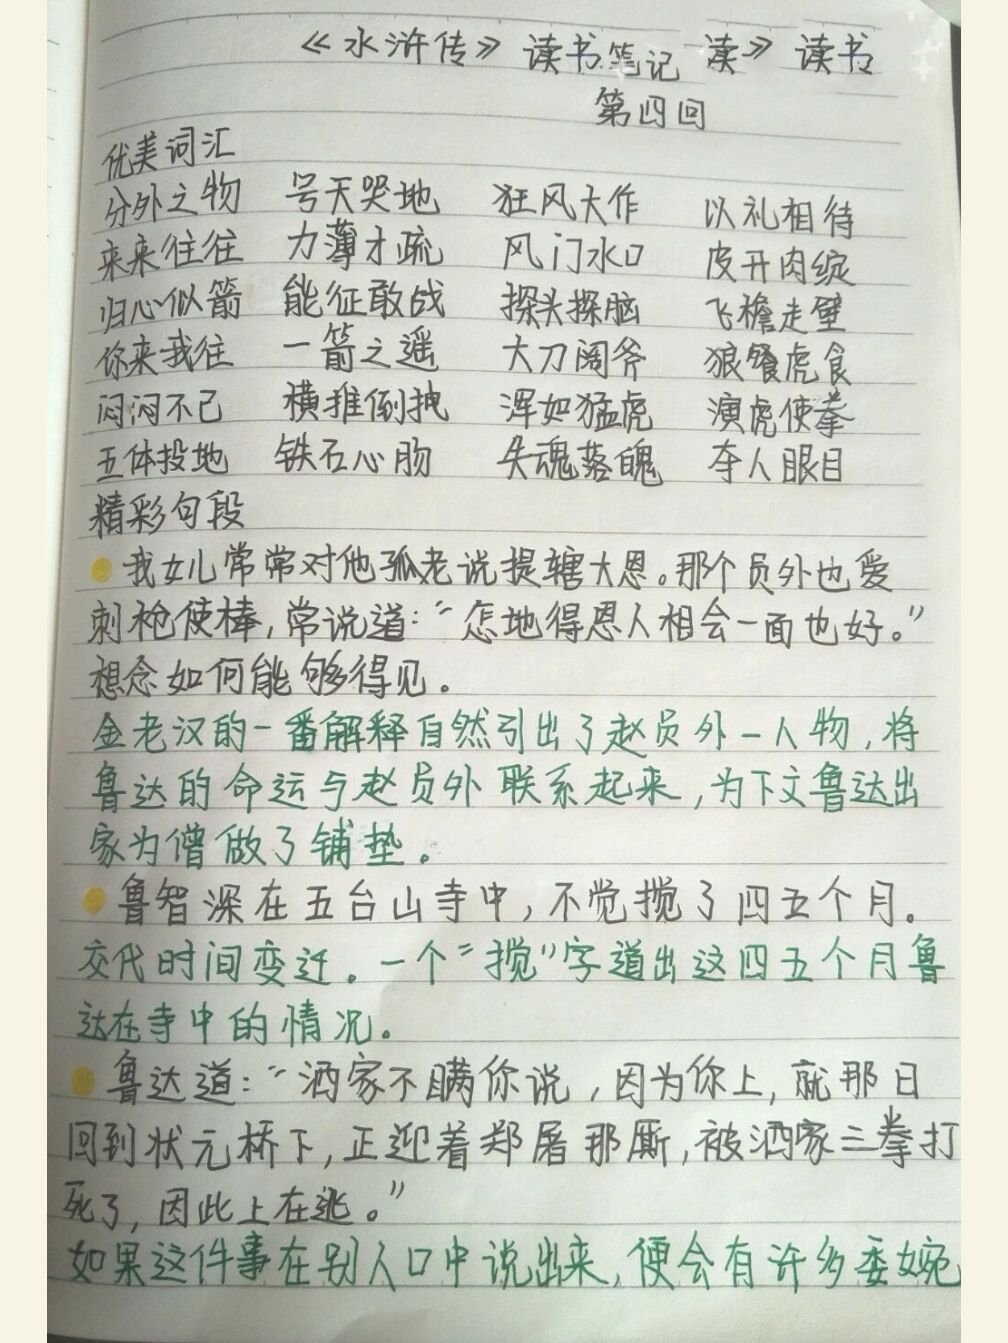 《水浒传》读书笔记 读》读书
第四回
优美词汇
分外之物 号天哭地 狂风大作 以礼相待
来来往往 力薄才疏 风门水口 皮开肉绽
归心似箭 能征敢战 探头探脑 飞檐走壁
你来我往 一箭之遥 大刀阔斧 狼餐虎食
闷闷不已 横推倒拽 浑如猛虎 演虎使拳
五体投地 铁石心肠 失魂落魄 夺人眼目
精彩句段
我女儿常常对他孤老说提辖大恩。那个员外也爱
刺枪使棒,常说道:“怎地得恩人相会一面也好。”
想念如何能够得见。
金老汉的一番解释自然引出了赵员外一人物,将
鲁达的命运与赵员外联系起来,为下文鲁达出
家为僧做了铺垫。
鲁智深在五台山寺中,不觉搅了四五个月。
交代时间变迁。一个“搅”字道出这四五个月鲁
达在寺中的情况。
鲁达道:“洒家不瞒你说,因为你上,就那日
回到状元桥下,正迎着郑屠那厮,被洒家三拳打
死了,因此上在逃。”
如果这件事在别人口中说出来,便会有许多委婉